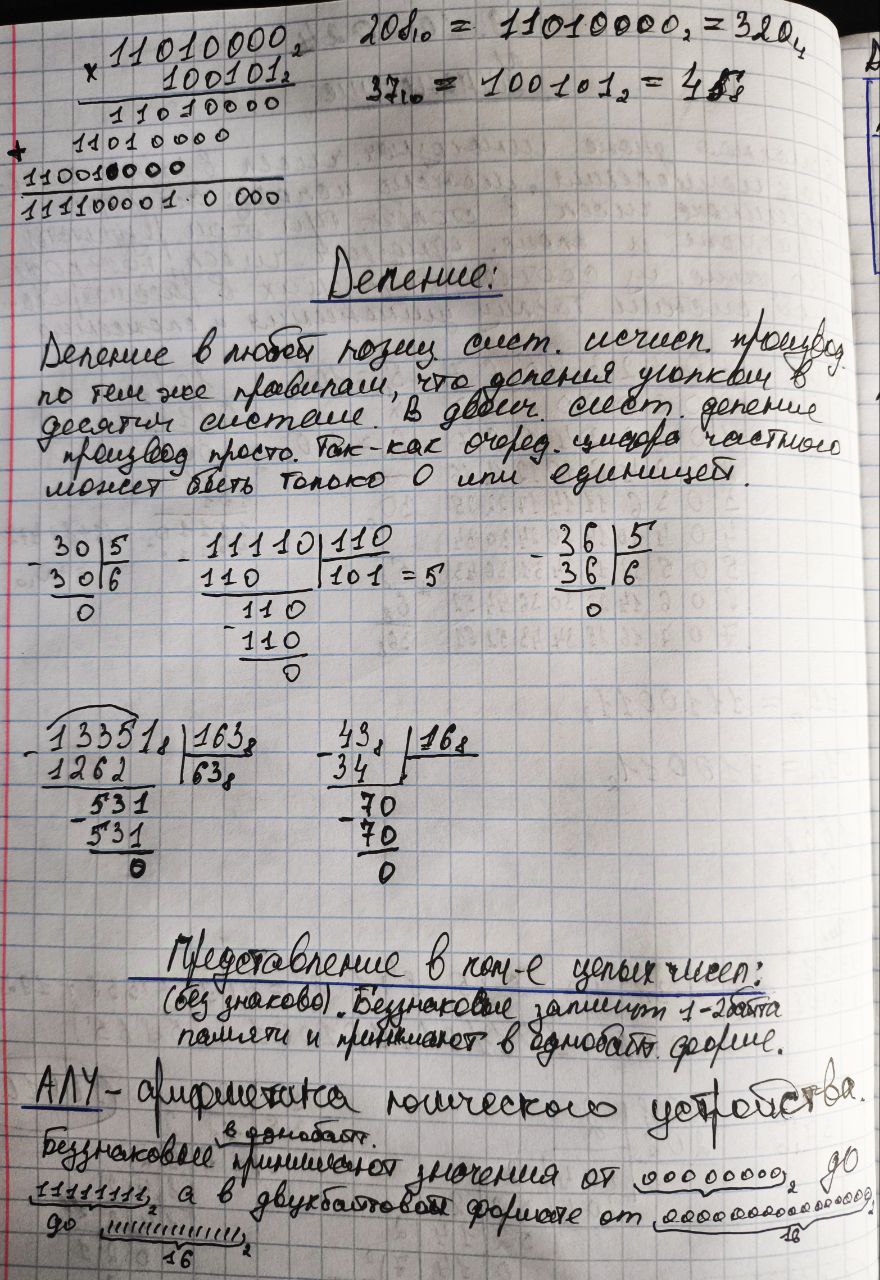 11010000₂ 208₁₀ = 11010000₂ = 320₄
× 100101₂ 37₁₀ = 100101₂ = 45₈
11010000
11010000
+
110010000
111100001.0 000
Деление:
Деление в любой позиц. сист. исчисл. производ.
по тем же правилам, что деления уголком в
десятич системе. В двоич. сист. деление
производ просто. Так-как очеред. цифра частного
может быть только 0 или единицей.
- 30 | 5 - 11110 | 110 - 36 | 5
30 | 6 110 | 101 = 5 36 | 6
0 110 0
- 110
0
- 13351₈ | 163₈ - 43₈ | 16₈
1262 | 63₈ 34
- 531 - 70
531 70
0 0
Представление в ком-е целых чисел:
(без знаково). Беззнаковые 1-2байта
памяти и принимают в однобайт. форме.
АЛУ - арифметика логического устройства.
в однобайт.
Беззнаковые принимают значения от 00000000₂ до
11111111₂ а в двухбайтовой формате от 0000000000000000₂
до 1111111111111111₂ 16
16